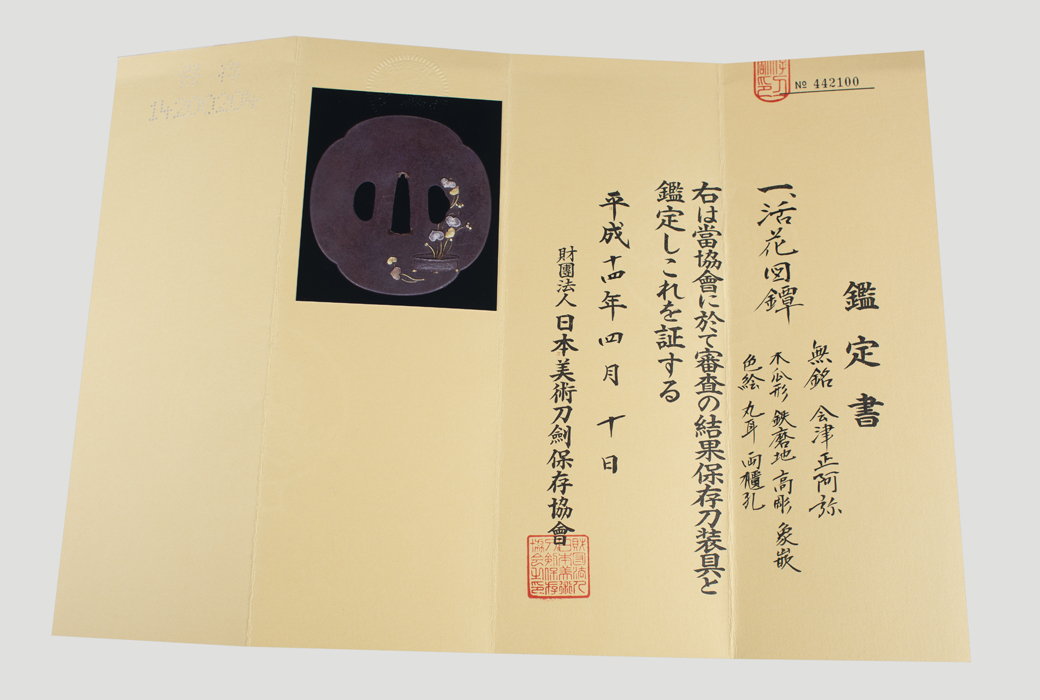 № 442100
鑑定書
一、活花図鐔
無銘 会津正阿弥
木瓜形 鉄磨地 高彫 象嵌
色絵 丸耳 両櫃孔
右は當協會に於て審査の結果保存刀装具と
鑑定しこれを証する
平成十四年四月十日
財團法人日本美術刀劍保存協會